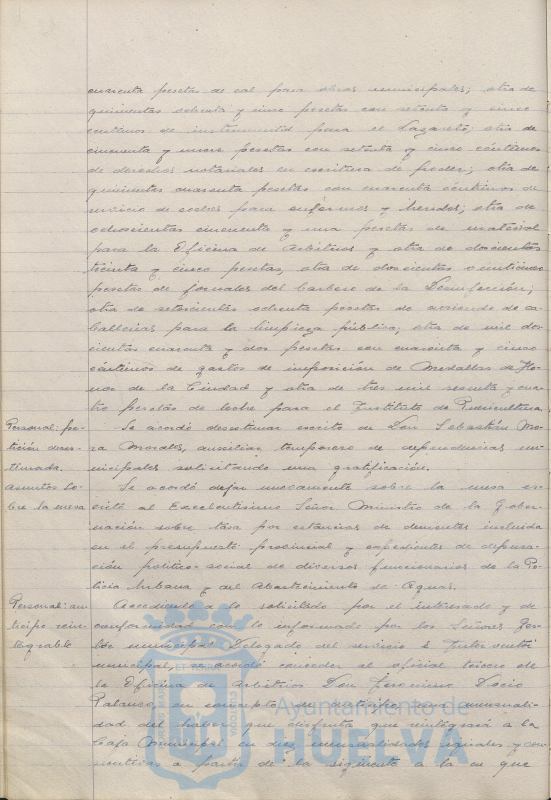 cuarenta pesetas de cal para obras municipales; otra de
quinientas ochenta y cinco pesetas con setenta y cinco
centimos de instrumental para el Lazareto; otra de
cincuenta y nueve pesetas con setenta y cinco céntimos
de derechos notariales en escritura de poder; otra de
quinientas cuarenta pesetas con cuarenta céntimos de
servicio de coches para enfermos y heridos; otra de
ochocientas cincuenta y una pesetas de material
para la Oficina de Arbitrios y otra de doscientas
treinta y cinco pesetas, otra de doscientas veinticinco
pesetas de jornales del barbero de la Desinfección;
otra de setecientas ochenta pesetas de arriendo de ca-
ballerias para la limpieza pública; otra de mil dos-
cientas cuarenta y dos pesetas con cuarenta y cinco
céntimos de gastos de imposición de Medallas de Ho-
nor de la Ciudad y otra de tres mil sesenta y cua-
tro pesetas de leche para el Instituto de Puericultura.
Personal: pe-
tición deses-
timada.
Se acordó desestimar escrito de Don Sebastián Mo-
ra Morales, auxiliar temporero de dependencias mu-
nicipales solicitando una gratificación.
Asuntos so-
bre la mesa
Se acordó dejar nuevamente sobre la mesa es-
crito al Excelentisimo Señor Ministro de la Gober-
nación sobre tasa por estancias de dementes incluida
en el presupuesto provincial y expedientes de depura-
ción politico-social de diversos funcionarios de la Po-
licia Urbana y del Abastecimiento de Aguas.
Personal: an-
ticipo rein-
tegrable
Accediendo a lo solicitado por el interesado y de
conformidad con lo informado por los Señores Ges-
tor municipal Delegado del servicio é Interventor
municipal, se acordó conceder al oficial tercero de
la Oficina de Arbitrios Don Jeronimo
en concepto de anticipo, una mensuali-
dad del haber que disfruta que reintegrará a la
Caja Municipal en diez mensualidades iguales y con-
secutivas a partir de la siguiente a la en que
Ayuntamiento de
HUELVA